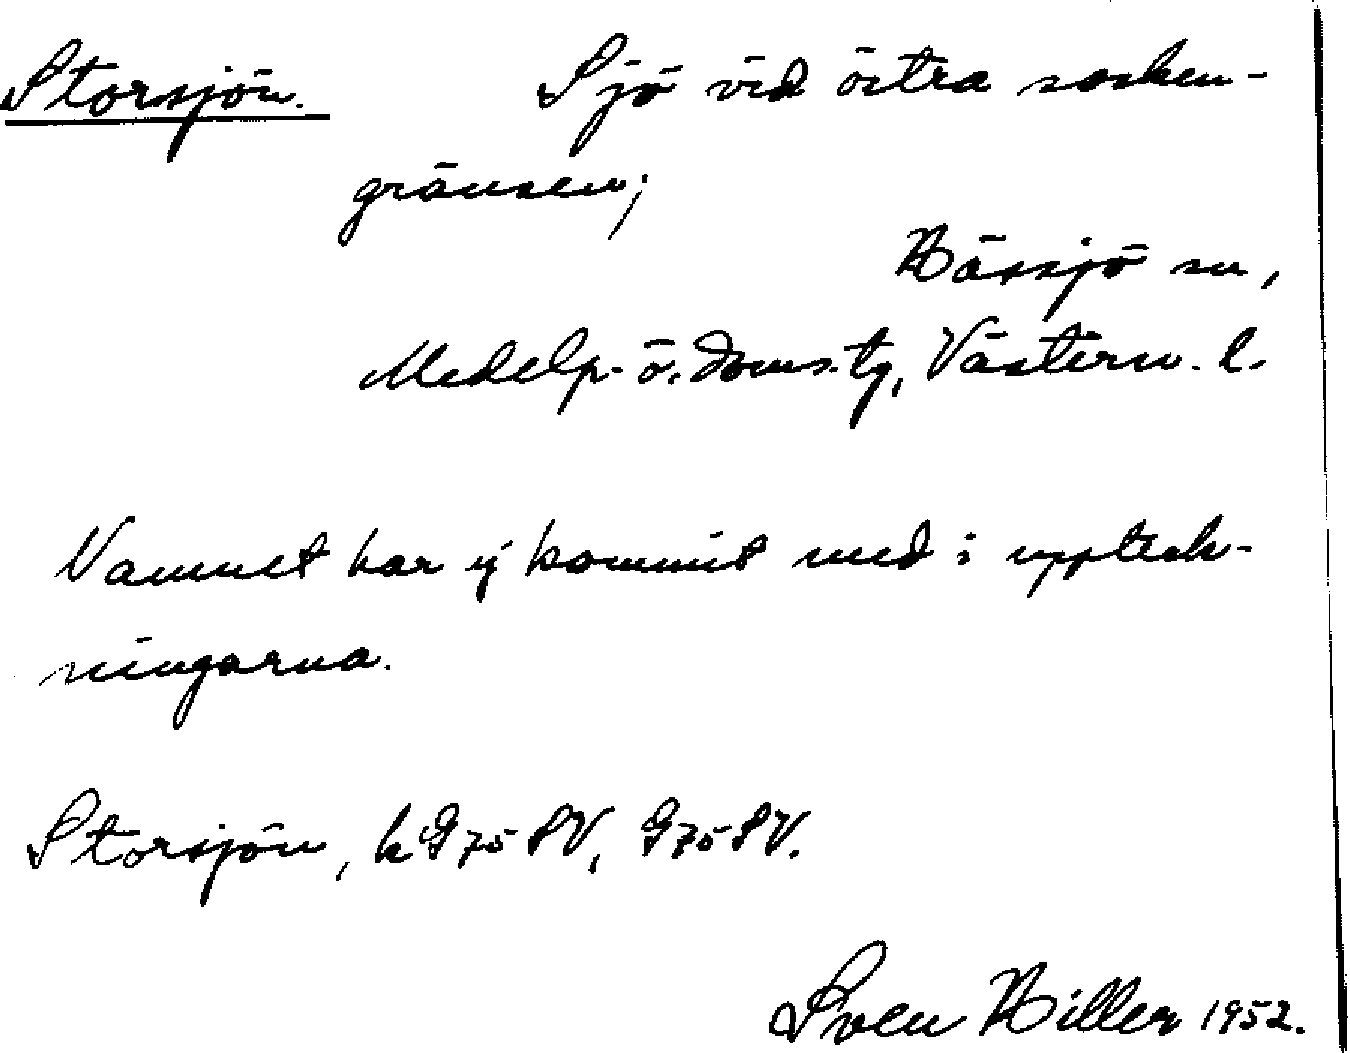 Storsjön. Sjö vid östra socken-
gränsen;
Hässjö sn,
Medelp. ö. doms.tg, Västern. l.
Namnet har ej kommit med i uppteck-
ningarna.
Storsjön, k G75 SV, G75 SV.
Sven Hiller 1952.